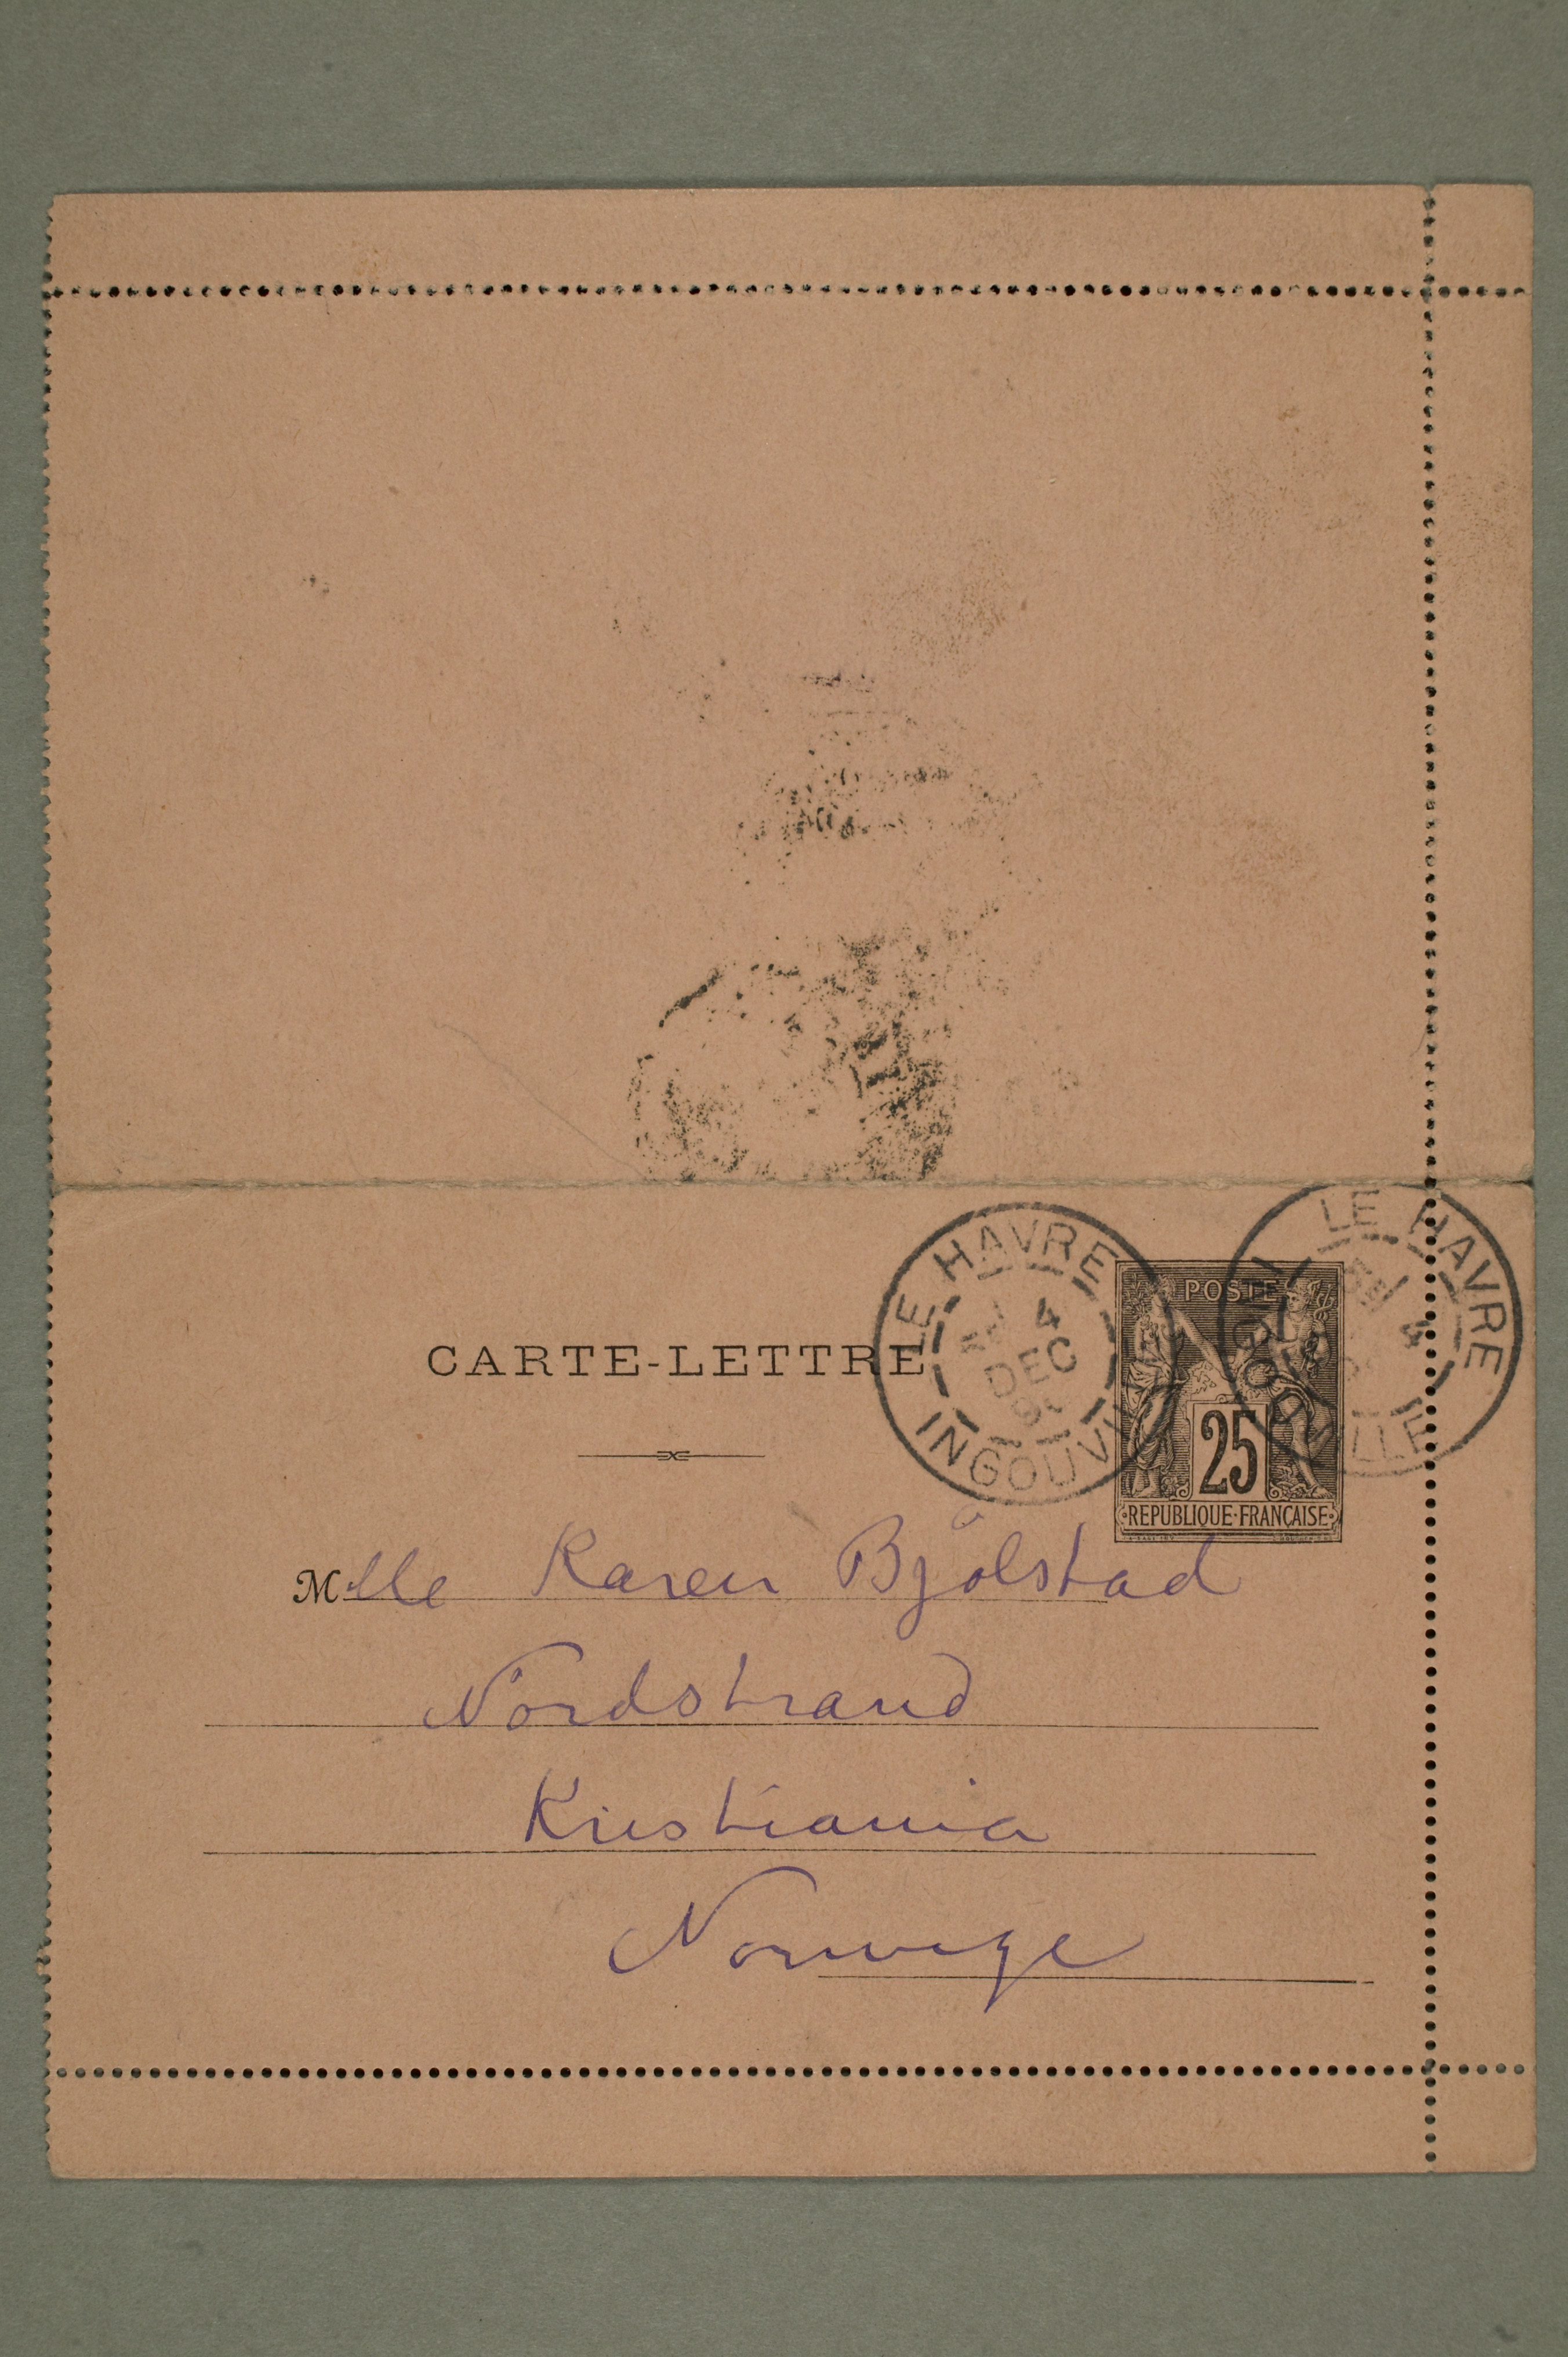 LE HAVRE
4
DEC
INGOUVI
LE HAVRE
4
POSTE
25
REPUBLIQUE·FRANÇAISE
CARTE-LETTRE
Mlle Karen Bjölstad
Nordstrand
Kristiania
Norwège